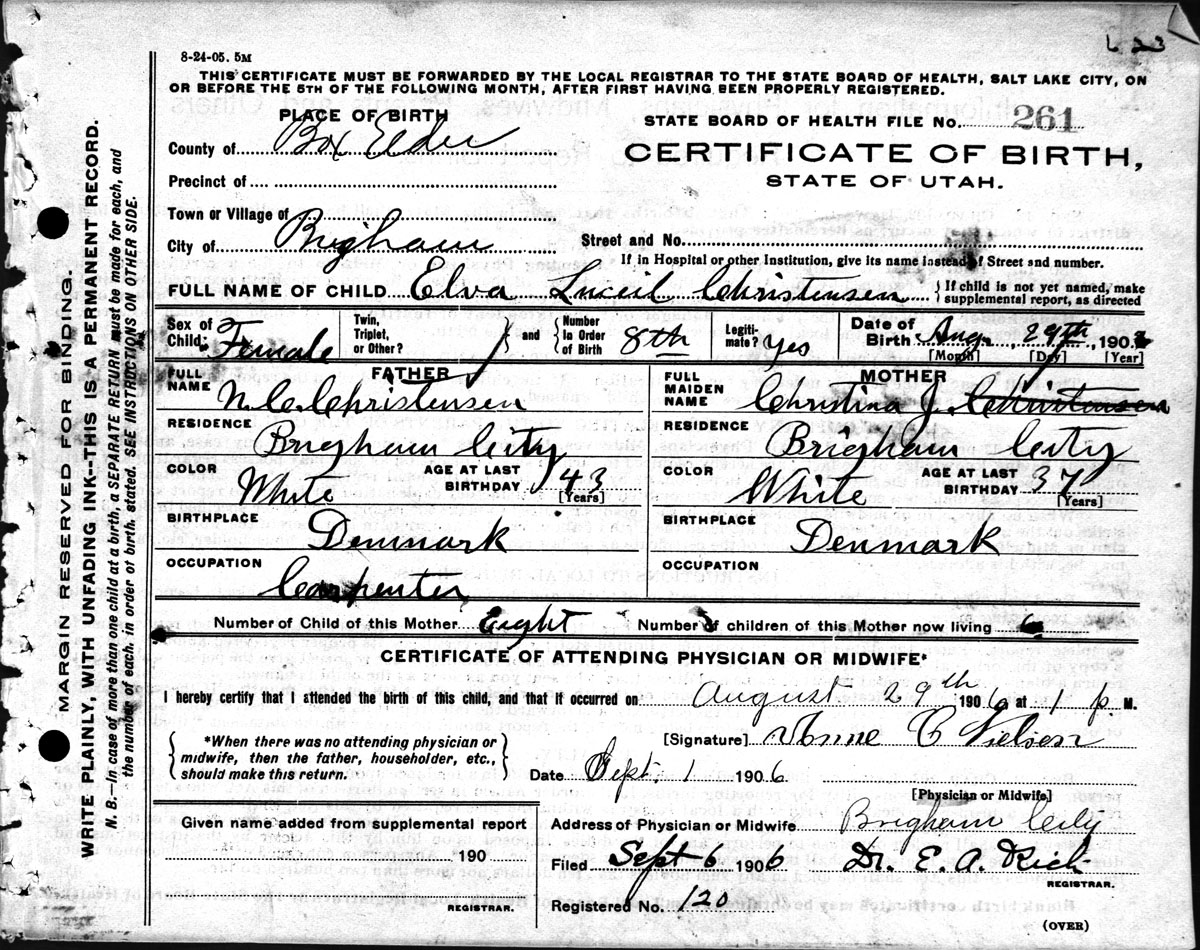 8-24-05. 5M
623
THIS CERTIFICATE MUST BE FORWARDED BY THE LOCAL REGISTRAR TO THE STATE BOARD OF HEALTH, SALT LAKE CITY, ON
OR BEFORE THE 5TH OF THE FOLLOWING MONTH, AFTER FIRST HAVING BEEN PROPERLY REGISTERED.
PLACE OF BIRTH
STATE BOARD OF HEALTH FILE No. 261
County of Box Elder
CERTIFICATE OF BIRTH,
STATE OF UTAH.
Precinct of
Town or Village of
City of Brigham
Street and No.
If in Hospital or other Institution, give its name instead of Street and number.
FULL NAME OF CHILD Elva Luceil Christensen { If child is not yet named, make
supplemental report, as directed
Sex of Child: Female
Twin, Triplet, or Other? } and { Number In Order of Birth 8th
Legitimate? Yes
Date of Birth Aug. 29th, 190
[Month] [Day] [Year]
FATHER
FULL NAME N. C. Christensen
RESIDENCE Brigham City
COLOR White AGE AT LAST BIRTHDAY 43 [Years]
BIRTHPLACE Denmark
OCCUPATION Carpenter
MOTHER
FULL MAIDEN NAME Christina J. Christensen
RESIDENCE Brigham City
COLOR White AGE AT LAST BIRTHDAY 37 [Years]
BIRTHPLACE Denmark
OCCUPATION
Number of Child of this Mother Eight Number of children of this Mother now living 6
CERTIFICATE OF ATTENDING PHYSICIAN OR MIDWIFE*
I hereby certify that I attended the birth of this child, and that it occurred on August 29th 1906 at 1 p. M.
{ *When there was no attending physician or
midwife, then the father, householder, etc.,
should make this return. }
[Signature] Anne C Nielsen
Date Sept. 1 1906
[Physician or Midwife]
Given name added from supplemental report
190
REGISTRAR.
Address of Physician or Midwife Brigham City
Filed Sept 6 1906 Dr. E. A. Rich
REGISTRAR.
Registered No. 120
(OVER)
MARGIN RESERVED FOR BINDING.
WRITE PLAINLY, WITH UNFADING INK--THIS IS A PERMANENT RECORD.
N. B.—In case of more than one child at a birth, a SEPARATE RETURN must be made for each, and
the number of each, in order of birth, stated. SEE INSTRUCTIONS ON OTHER SIDE.